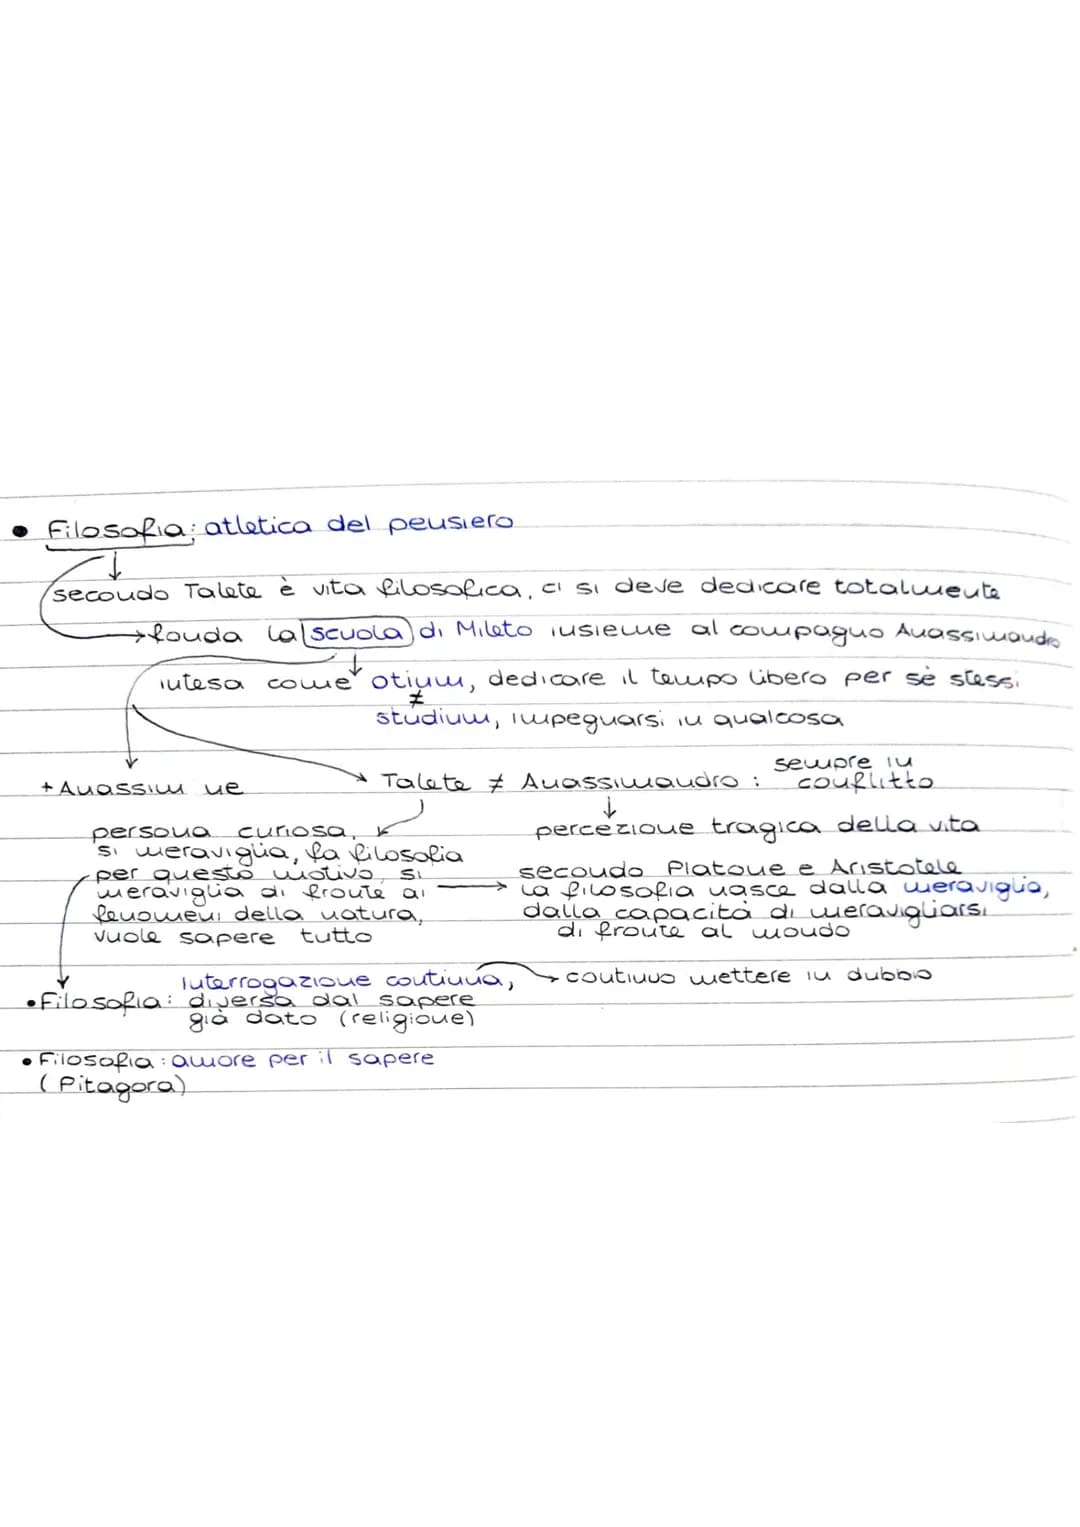 • Filosofia: atletica del pensiero
secondo Talete è vita filosofica, ci si deve dedicare totalmente
fonda la scuola di Mileto insieme al compagno Anassimandro
intesa come otium, dedicare il tempo libero per sè stessi
≠
studium, impegnarsi in qualcosa
+ Anassim ne
Talete ≠ Anassimandro : sempre in
conflitto
persona curiosa,
si meraviglia, fa filosofia
per questo motivo, si
meraviglia di fronte ai
fenomeni della natura,
vuole sapere tutto
percezione tragica della vita
secondo Platone e Aristotele
la filosofia nasce dalla meraviglia,
dalla capacità di meravigliarsi
di fronte al mondo
• Filosofia: interrogazione continua,
diversa dal sapere
già dato (religione)
continuo mettere in dubbio
• Filosofia: amore per il sapere
(Pitagora)